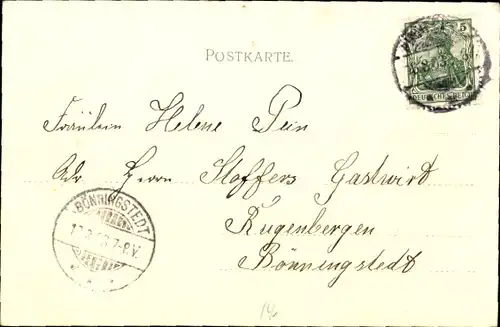 POSTKARTE.
5
DEUTSCHES REICH
Fräulein Helene Pein
Adr Herrn Stoffers Gastwirt
Rugenbergen
Bönningstedt
BÖNNINGSTEDT
7-8.V.